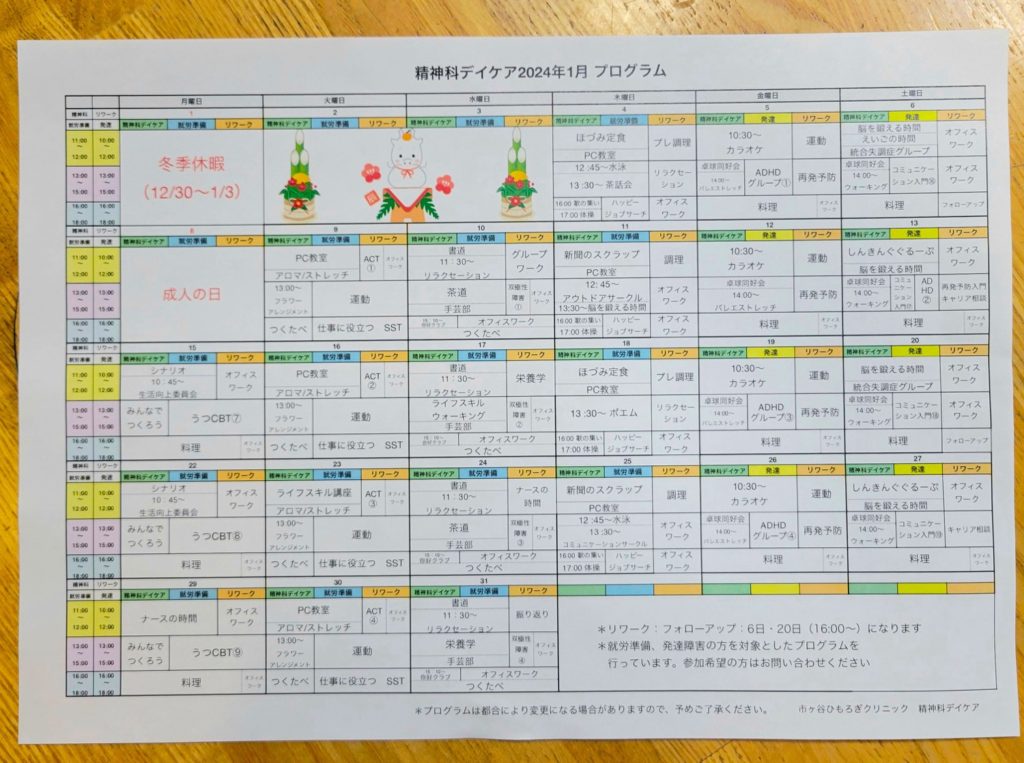 精神科デイケア2024年1月 プログラム
月曜日 火曜日 水曜日 木曜日 金曜日 土曜日
精神科 リワーク 1 2 3 4 5 6
就労準備 発達 精神科デイケア 就労準備 リワーク 精神科デイケア 就労準備 リワーク 精神科デイケア 就労準備 リワーク 精神科デイケア 就労準備 リワーク 精神科デイケア 発達 リワーク 精神科デイケア 発達 リワーク
11:00〜12:00 10:00〜12:00
冬季休暇
(12/30〜1/3)
ほづみ定食
PC教室
プレ調理
10:30〜
カラオケ
運動
脳を鍛える時間
えいごの時間
統合失調症グループ
オフィス
ワーク
13:00〜15:00 13:00〜15:00
12:45〜水泳
13:30〜茶話会
リラクセー
ション
卓球同好会
14:00〜
バレエストレッチ
ADHD
グループ①
再発予防
卓球同好会
14:00〜
ウォーキング
コミュニケー
ション入門⑯
オフィス
ワーク
16:00〜18:00 16:00〜18:00
16:00 歌の集い
17:00 体操
ハッピー
ジョブサーチ
オフィス
ワーク
料理
オフィス
ワーク
料理
フォローアップ
精神科 リワーク 8 9 10 11 12 13
就労準備 発達 精神科デイケア 就労準備 リワーク 精神科デイケア 就労準備 リワーク 精神科デイケア 就労準備 リワーク 精神科デイケア 就労準備 リワーク 精神科デイケア 発達 リワーク 精神科デイケア 発達 リワーク
11:00〜12:00 10:00〜12:00
成人の日
PC教室
アロマ/ストレッチ
ACT
①
オフィス
ワーク
書道
11:30〜
リラクセーション
グループ
ワーク
新聞のスクラップ
PC教室
調理
10:30〜
カラオケ
運動
しんきんぐぐるーぷ
脳を鍛える時間
オフィス
ワーク
13:00〜15:00 13:00〜15:00
13:00〜
フラワー
アレンジメント
運動
茶道
手芸部
双極性
障害
①
オフィス
ワーク
12:45〜
アウトドアサークル
13:30〜脳を鍛える時間
オフィス
ワーク
卓球同好会
14:00〜
バレエストレッチ
再発予防
卓球同好会
14:00〜
ウォーキング
コミュニ
ケーション
入門⑰
AD
HD
②
再発予防入門
キャリア相談
16:00〜18:00 16:00〜18:00
つくたべ
仕事に役立つ SST
オフィスワーク
つくたべ
16:00 歌の集い
17:00 体操
ハッピー
ジョブサーチ
オフィス
ワーク
料理
オフィス
ワーク
料理
オフィス
ワーク
精神科 リワーク 15 16 17 18 19 20
就労準備 発達 精神科デイケア 就労準備 リワーク 精神科デイケア 就労準備 リワーク 精神科デイケア 就労準備 リワーク 精神科デイケア 就労準備 リワーク 精神科デイケア 発達 リワーク 精神科デイケア 発達 リワーク
11:00〜12:00 10:00〜12:00
シナリオ
10:45〜
生活向上委員会
オフィス
ワーク
PC教室
アロマ/ストレッチ
ACT
②
オフィス
ワーク
書道
11:30〜
リラクセーション
栄養学
ほづみ定食
PC教室
プレ調理
10:30〜
カラオケ
運動
脳を鍛える時間
統合失調症グループ
オフィス
ワーク
13:00〜15:00 13:00〜15:00
みんなで
つくろう
うつCBT⑦
13:00〜
フラワー
アレンジメント
運動
ライフスキル
ウォーキング
手芸部
双極性
障害
②
オフィス
ワーク
13:30〜ポエム
リラクセー
ション
卓球同好会
14:00〜
バレエストレッチ
ADHD
グループ③
再発予防
卓球同好会
14:00〜
ウォーキング
コミュニケー
ション入門⑱
オフィス
ワーク
16:00〜18:00 16:00〜18:00
料理
オフィス
ワーク
つくたべ
仕事に役立つ SST
オフィスワーク
つくたべ
16:00 歌の集い
17:00 体操
ハッピー
ジョブサーチ
オフィス
ワーク
料理
オフィス
ワーク
料理
フォローアップ
精神科 リワーク 22 23 24 25 26 27
就労準備 発達 精神科デイケア 就労準備 リワーク 精神科デイケア 就労準備 リワーク 精神科デイケア 就労準備 リワーク 精神科デイケア 就労準備 リワーク 精神科デイケア 発達 リワーク 精神科デイケア 発達 リワーク
11:00〜12:00 10:00〜12:00
シナリオ
10:45〜
生活向上委員会
オフィス
ワーク
ライフスキル講座
アロマ/ストレッチ
ACT
③
オフィス
ワーク
書道
11:30〜
リラクセーション
ナースの
時間
新聞のスクラップ
PC教室
調理
10:30〜
カラオケ
運動
しんきんぐぐるーぷ
脳を鍛える時間
オフィス
ワーク
13:00〜15:00 13:00〜15:00
みんなで
つくろう
うつCBT⑧
13:00〜
フラワー
アレンジメント
運動
茶道
手芸部
双極性
障害
③
オフィス
ワーク
12:45〜水泳
13:30〜
コミュニケーションサークル
オフィス
ワーク
卓球同好会
14:00〜
バレエストレッチ
ADHD
グループ④
再発予防
卓球同好会
14:00〜
ウォーキング
コミュニケー
ション入門⑲
キャリア相談
16:00〜18:00 16:00〜18:00
料理
オフィス
ワーク
つくたべ
仕事に役立つ SST
オフィスワーク
つくたべ
16:00 歌の集い
17:00 体操
ハッピー
ジョブサーチ
オフィス
ワーク
料理
オフィス
ワーク
料理
オフィス
ワーク
精神科 リワーク 29 30 31
就労準備 発達 精神科デイケア 就労準備 リワーク 精神科デイケア 就労準備 リワーク 精神科デイケア 就労準備 リワーク
11:00〜12:00 10:00〜12:00
ナースの時間
オフィス
ワーク
PC教室
アロマ/ストレッチ
ACT
④
オフィス
ワーク
書道
11:30〜
リラクセーション
振り返り
13:00〜15:00 13:00〜15:00
みんなで
つくろう
うつCBT⑨
13:00〜
フラワー
アレンジメント
運動
栄養学
手芸部
双極性
障害
④
オフィス
ワーク
16:00〜18:00 16:00〜18:00
料理
オフィス
ワーク
つくたべ
仕事に役立つ SST
オフィスワーク
つくたべ
＊リワーク：フォローアップ：6日・20日（16:00〜）になります
＊就労準備、発達障害の方を対象としたプログラムを
行っています。参加希望の方はお問い合わせください
＊プログラムは都合により変更になる場合がありますので、予めご了承ください。 市ヶ谷ひもろぎクリニック 精神科デイケア